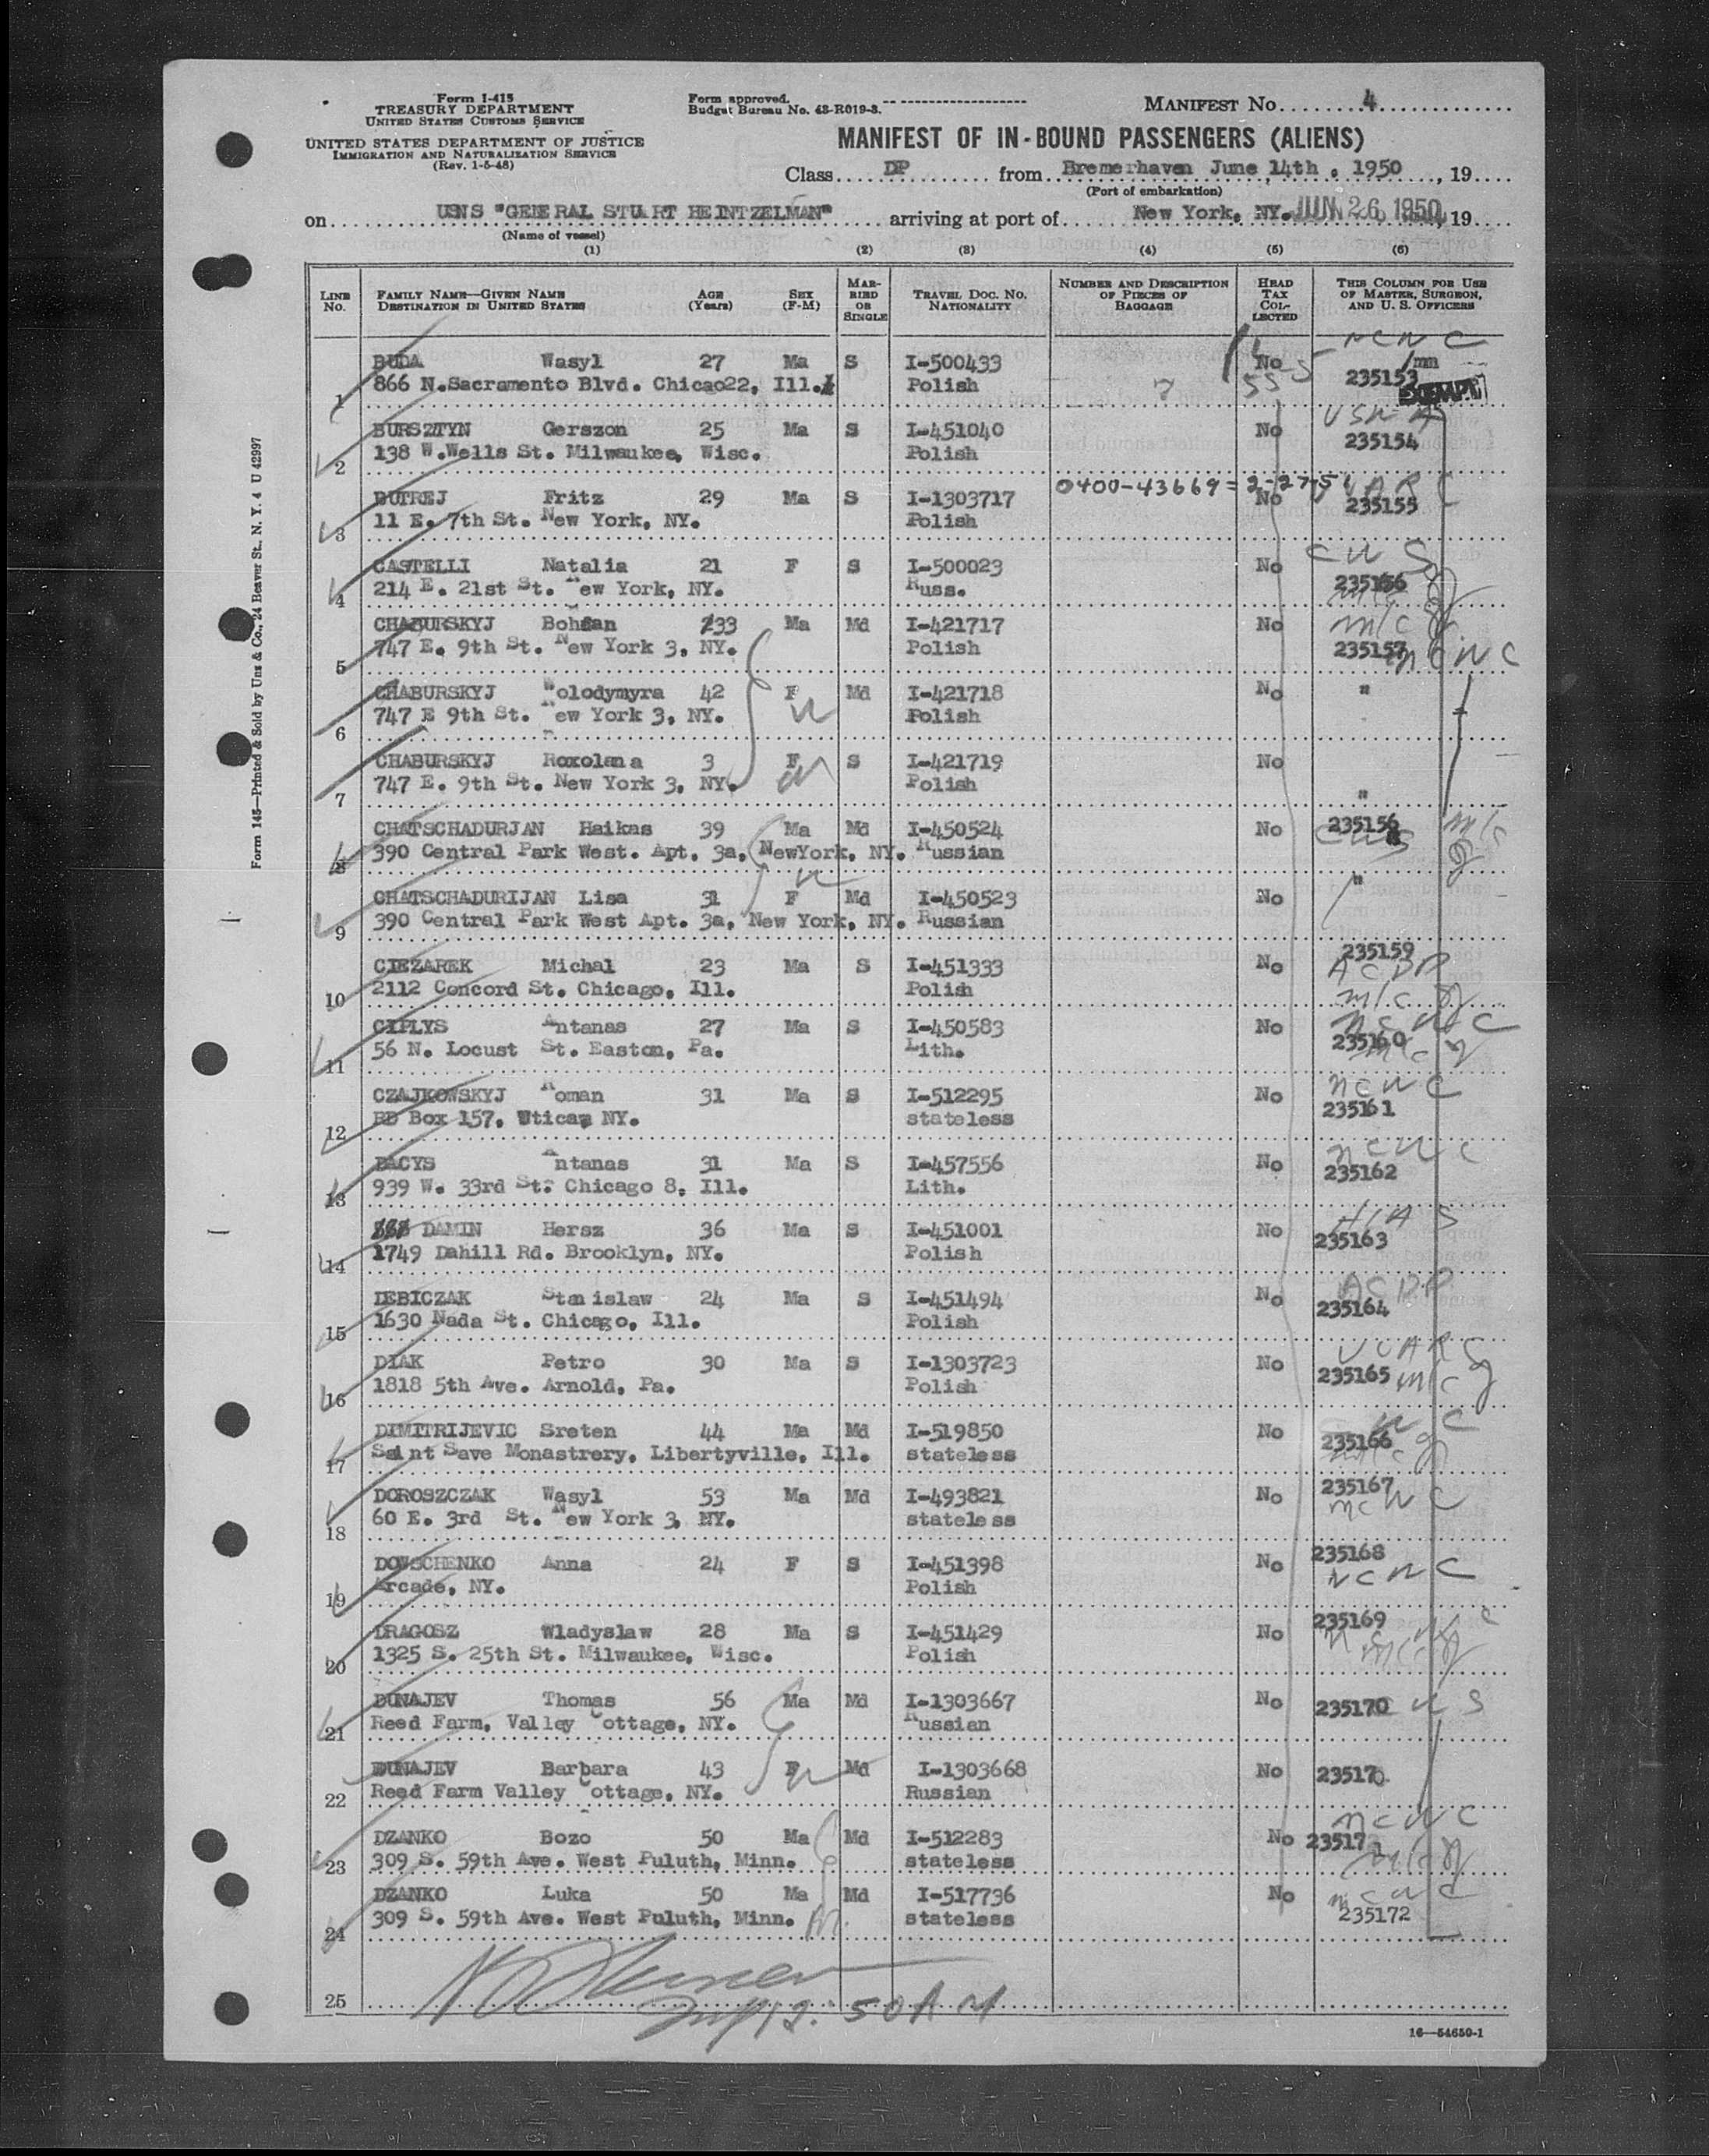 Form I-415
TREASURY DEPARTMENT
UNITED STATES CUSTOMS SERVICE
UNITED STATES DEPARTMENT OF JUSTICE
IMMIGRATION AND NATURALIZATION SERVICE
(Rev. 1-5-48)
Form approved.
Budget Bureau No. 43-R019-3.
MANIFEST NO. 4
MANIFEST OF IN-BOUND PASSENGERS (ALIENS)
Class DP from Bremerhaven June 14th. 1950, 19
(Port of embarkation)
on USNS "GENERAL STUART HEINTZELMAN" arriving at port of New York, NY. JUN 26 1950, 19
(Name of vessel)
(1) (2) (3) (4) (5) (6)
LINE NO. FAMILY NAME—GIVEN NAME DESTINATION IN UNITED STATES AGE (Years) SEX (F-M) MARRIED OR SINGLE TRAVEL DOC. NO. NATIONALITY NUMBER AND DESCRIPTION OF PIECES OF BAGGAGE HEAD TAX COLLECTED THIS COLUMN FOR USE OF MASTER, SURGEON, AND U. S. OFFICERS
BUDA Wasyl 27 Ma S I-500433 No NCWC 235153
1 866 N.Sacramento Blvd. Chicao22, Ill. Polish EXEMPT
BURSZTYN Gerszon 25 Ma S I-451040 No USNA 235154
2 138 W.Wells St. Milwaukee, Wisc. Polish
0400-43669=2-27-51
BUTREJ Fritz 29 Ma S I-1303717 No 235155
3 11 E. 7th St. New York, NY. Polish
CASTELLI Natalia 21 F S I-500023 No CWS 235156
4 214 E. 21st St. New York, NY. Russ.
CHABURSKYJ Bohdan 33 Ma Md I-421717 No m/c 235157 NCWC
5 747 E. 9th St. New York 3, NY. Polish
CHABURSKYJ Wolodymyra 42 F Md I-421718 No "
6 747 E 9th St. New York 3, NY. Polish
CHABURSKYJ Roxolana 3 F S I-421719 No
7 747 E. 9th St. New York 3, NY. Polish "
CHATSCHADURJAN Haikas 39 Ma Md I-450524 No CWS m/c
8 390 Central Park West. Apt. 3a, NewYork, NY. Russian
CHATSCHADURIJAN Lisa 31 F Md I-450523 No "
9 390 Central Park West Apt. 3a, New York, NY. Russian
CIEZAREK Michal 23 Ma S I-451333 No 235159 ACDP
10 2112 Concord St. Chicago, Ill. Polish m/c
CIPLYS Antanas 27 Ma S I-450583 No NCWC 235160
11 56 N. Locust St. Easton, Pa. Lith.
CZAJKOWSKYJ Roman 31 Ma S I-512295 No NCWC 235161
12 RD Box 157, Utica, NY. stateless
DACYS Antanas 31 Ma S I-457556 No NCWC 235162
13 939 W. 33rd St. Chicago 8, Ill. Lith.
DAMIN Hersz 36 Ma S I-451001 No HIAS 235163
14 1749 Dahill Rd. Brooklyn, NY. Polish
DEBICZAK Stanislaw 24 Ma S I-451494 No ACDP 235164
15 1630 Nada St. Chicago, Ill. Polish
DIAK Petro 30 Ma S I-1303723 No UUARC 235165 m/c
16 1818 5th Ave. Arnold, Pa. Polish
DIMITRIJEVIC Sreten 44 Ma Md I-519850 No 235166
17 Saint Save Monastrery, Libertyville, Ill. stateless
DOROSZCZAK Wasyl 53 Ma Md I-493821 No 235167 NCWC
18 60 E. 3rd St. New York 3, NY. stateless
DOWSCHENKO Anna 24 F S I-451398 No 235168 NCWC
19 Arcade, NY. Polish
DRAGOSZ Wladyslaw 28 Ma S I-451429 No 235169 NCWC
20 1325 S. 25th St. Milwaukee, Wisc. Polish m/c
DUNAJEV Thomas 56 Ma Md I-1303667 No 235170 CWS
21 Reed Farm, Valley Cottage, NY. Russian
DUNAJEV Barbara 43 F Md I-1303668 No 235170
22 Reed Farm Valley Cottage, NY. Russian
DZANKO Bozo 50 Ma Md I-512283 No NCWC
23 309 S. 59th Ave. West Puluth, Minn. stateless m/c
DZANKO Luka 50 Ma Md I-517736 No NCWC 235172
24 309 S. 59th Ave. West Puluth, Minn. stateless
25
50 AM
16—54650-1
Form 145—Printed & Sold by Unz & Co., 24 Beaver St., N. Y. 4 U 4297